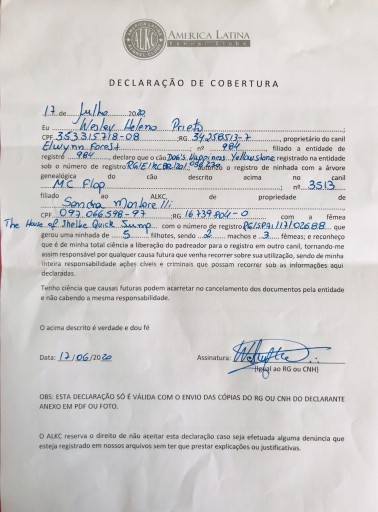 ALKC
AMERICA LATINA
KENNEL CLUBE
DECLARAÇÃO DE COBERTURA
17 de Julho 2020
Eu Wesley Heleno Prieto
CPF 353315718-08 RG 34258513-7, proprietário do canil
Elwynn Forest nº 984, filiado a entidade de
registro 984, declaro que o cão Dog's Happiness Yellowstone registrado na entidade
sob o número de registro autorizo o registro de ninhada com a árvore
genealógica do cão descrito acima no canil
MC Flop nº 3513
filiado ao ALKC, de propriedade de
Sandra Montorelli
CPF 097.066.598-97 ;RG 16739804-0 com a fêmea
The House of Shelke Quick Sump com o número de registro RG/SP21/17/02688 que
gerou uma ninhada de 5 filhotes, sendo 2 machos e 3 fêmeas; e reconheço
que é de minha total ciência a liberação do padreador para o registro em outro canil, tornando-me
assim responsável por qualquer causa futura que venha recorrer sobre sua utilização, sendo de minha
inteira responsabilidade ações cíveis e criminais que possam recorrer sob as informações aqui
declaradas.
Tenho ciência que causas futuras podem acarretar no cancelamento dos documentos pela entidade
e não cabendo a mesma responsabilidade.
O acima descrito é verdade e dou fé
Data: 17/06/2020 Assinatura:
(Igual ao RG ou CNH)
OBS: ESTA DECLARAÇÃO SÓ É VÁLIDA COM O ENVIO DAS CÓPIAS DO RG OU CNH DO DECLARANTE
ANEXO EM PDF OU FOTO.
O ALKC reserva o direito de não aceitar esta declaração caso seja efetuada alguma denúncia que
esteja registrado em nossos arquivos sem ter que prestar explicações ou justificativas.